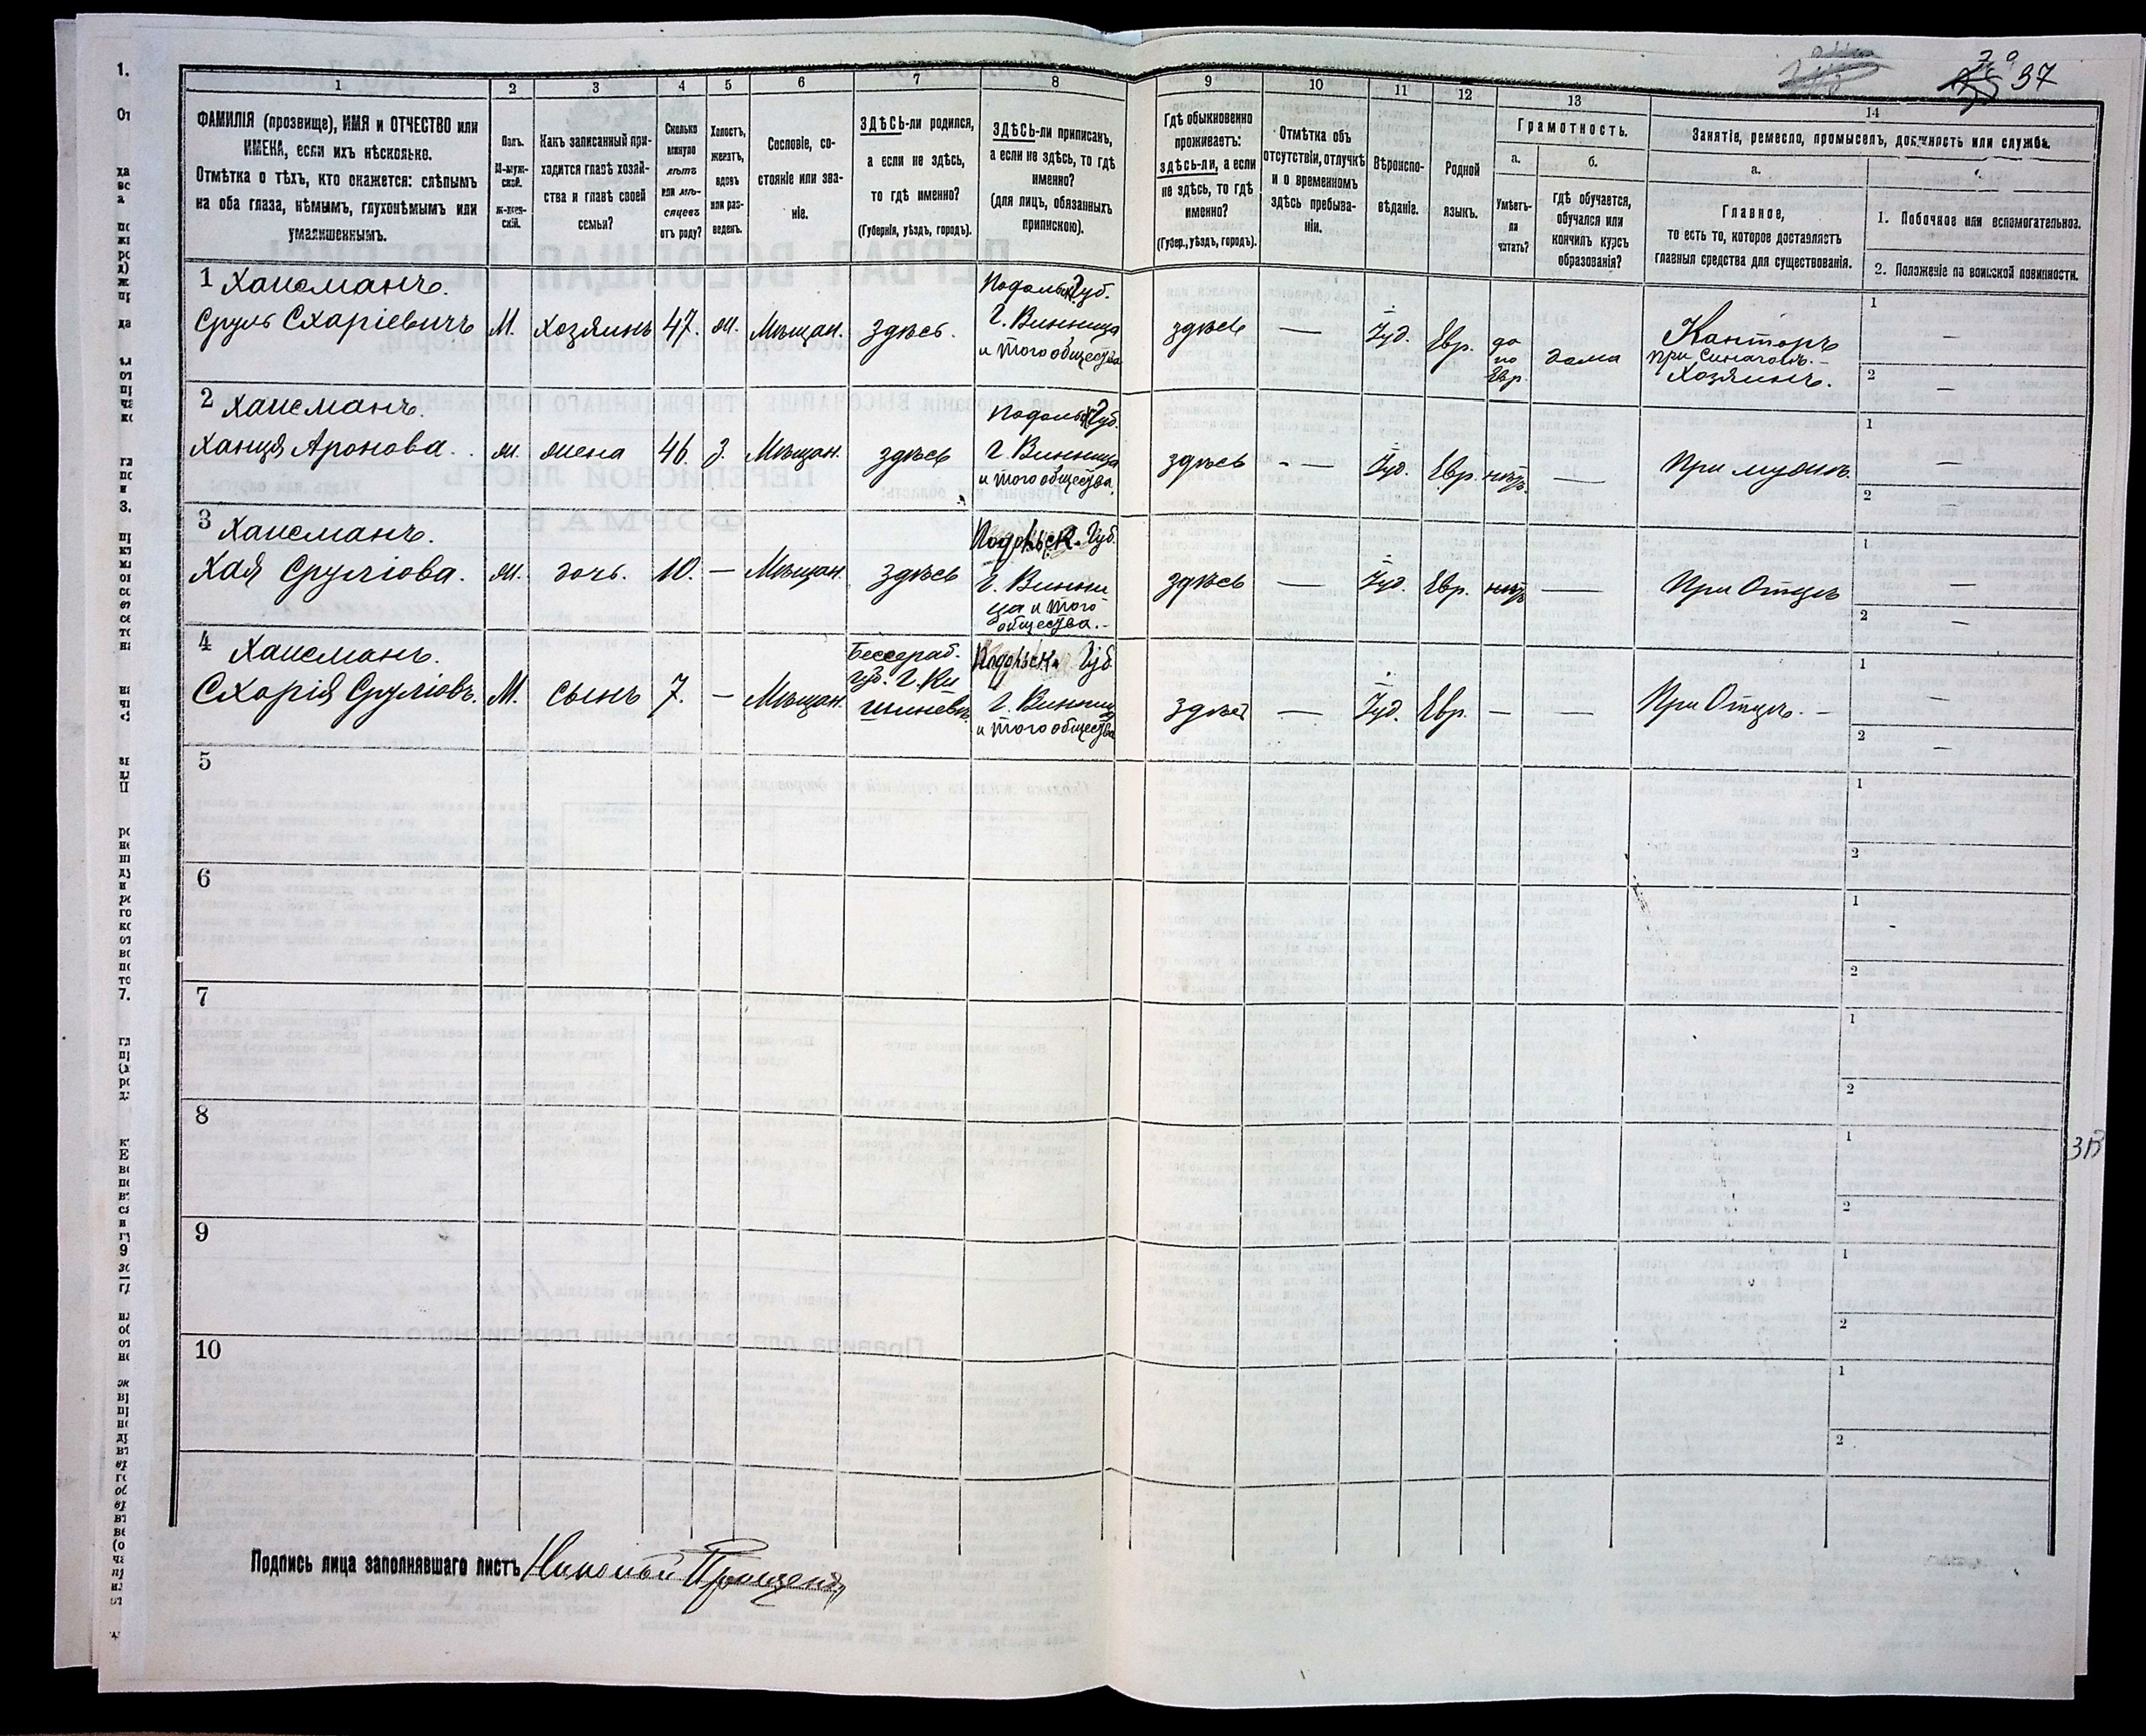 37
1
2
3
4
5
6
7
8
9
10
11
12
13
14
ФАМИЛІЯ (прозвище), ИМЯ и ОТЧЕСТВО или
ИМЕНА, если ихъ нѣсколько.
Отмѣтка о тѣхъ, кто окажется: слѣпымъ
на оба глаза, нѣмымъ, глухонѣмымъ или
умалишеннымъ.
Полъ.
М-муж-
ской.
ж-жен-
скій.
Какъ записанный при-
ходится главѣ хозяй-
ства и главѣ своей
семьи?
Сколько
минуло
лѣтъ
или мѣ-
сяцевъ
отъ роду?
Холостъ,
женатъ,
вдовъ
или раз-
веденъ.
Сословіе, со-
стояніе или зва-
ніе.
ЗДѢСЬ-ли родился,
а если не здѣсь,
то гдѣ именно?
(Губернія, уѣздъ, городъ).
ЗДѢСЬ-ли приписанъ,
а если не здѣсь, то гдѣ
именно?
(для лицъ, обязанныхъ
припискою).
Гдѣ обыкновенно
проживаетъ:
здѣсь-ли, а если
не здѣсь, то гдѣ
именно?
(Губер., уѣздъ, городъ).
Отмѣтка объ
отсутствіи, отлучкѣ
и о временномъ
здѣсь пребыва-
ніи.
Вѣроиспо-
вѣданіе.
Родной
языкъ.
Грамотность.
а.
Умѣетъ-
ли
читать?
б.
гдѣ обучается,
обучался или
кончилъ курсъ
образованія?
Занятіе, ремесло, промыселъ, должность или служба.
а.
Главное,
то есть то, которое доставляетъ
главныя средства для существованія.
1. Побочное или вспомогательное.
2. Положеніе по воинской повинности.
1 Хаисманъ.
Сруль Схаріевичъ М. Хозяинъ 47. ж. Мѣщан. здѣсь.
Подольск. Губ.
г. Винница
и того общества
здѣсь — Іуд. Евр.
да
по
Евр.
дома
Канторъ
при Синагогѣ.-
Хозяинъ.
1 —
2 —
2 Хаисманъ.
Ханця Аронова. ж. жена 46. З. Мѣщан. здѣсь
Подольск. Губ.
г. Винница
и того общества.
здѣсь - — Іуд. Евр. нѣтъ. — При мужѣ.
1 —
2 —
3 Хаисманъ.
Хая Сруліова. ж. дочь. 10. — Мѣщан. здѣсь
Подольск. Губ.
г. Винни
ца и того
общества.-
здѣсь — Іуд. Евр. нѣтъ — При Отцѣ
1 —
2 —
4 Хаисманъ.
Схарія Сруліовъ. М. сынъ 7. — Мѣщан.
Бессараб.
губ. г. Ки
шиневъ.
Подольск. Губ.
г. Винница
и того общества
здѣсь — Іуд. Евр. — — При Отцѣ. -
1 —
2 —
5
1
2
6
1
2
7
1
2
8
1
2
9
1
2
10
1
2
Подпись лица заполнявшаго листъ Николай